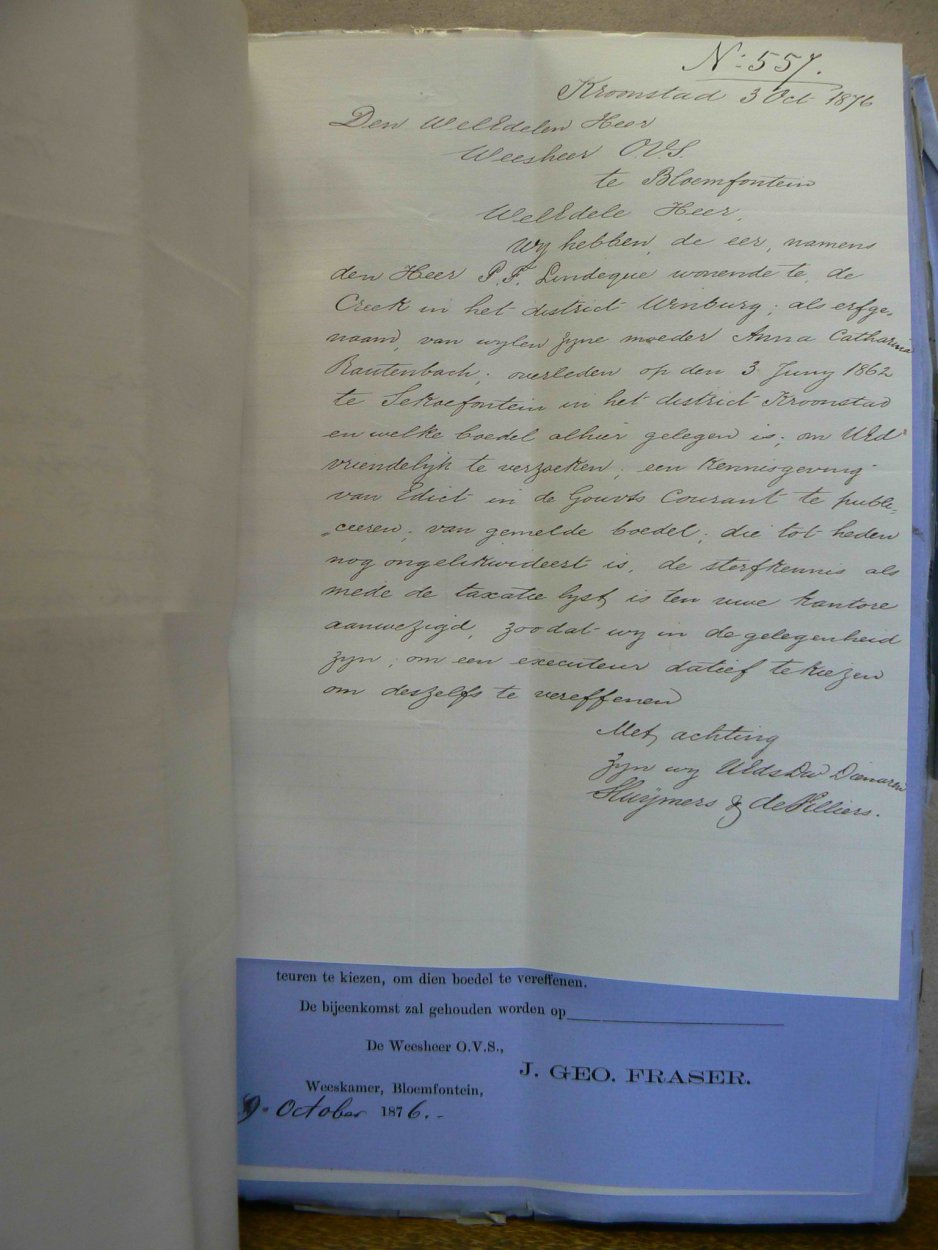 No: 557.
Kroonstad 3 Oct 1876
Den WelEdelen Heer
Weesheer O.V.S.
te Bloemfontein
WelEdele Heer,
Wij hebben de eer, namens
den Heer P. F. Lindeque wonende te de
Creek in het district Winburg, als erfge,
naam, van wijlen zijne moeder Anna Catharina
Rautenbach; overleden op den 3 Juny 1862
te Sekoefontein in het district Kroonstad
en welke boedel alhier gelegen is; om UEd
vriendelijk te verzoeken; een Kennisgeving
van Edict in de Gouvts Courant te publi=
„ceeren; van gemelde boedel; die tot heden
nog ongelikwideert is, de sterfkennis als
mede de taxatie lyst, is ten uwe kantore
aanwezigd, zoodat wy in de gelegenheid
zyn; om een executeur datief te kiezen
om deszelfs te vereffenen
Met achting
zyn wy UEds Dw Dienaren
Sluijmers & de Villiers.
teuren te kiezen, om dien boedel te vereffenen.
De bijeenkomst zal gehouden worden op
De Weesheer O.V.S.,
J. GEO. FRASER.
Weeskamer, Bloemfontein,
9 October 1876.-